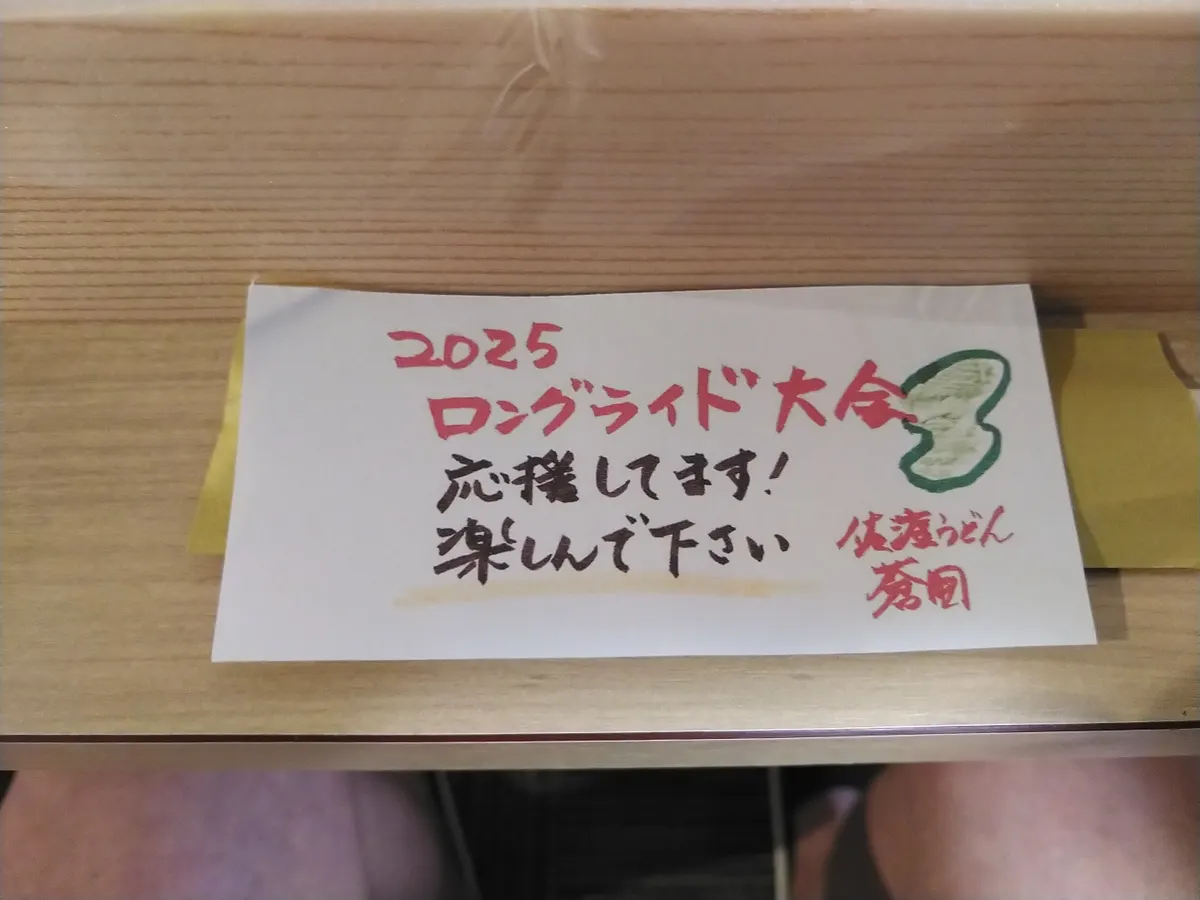 2025
ロングライド大会
応援してます!
楽しんで下さい
佐渡うどん
蒼囲